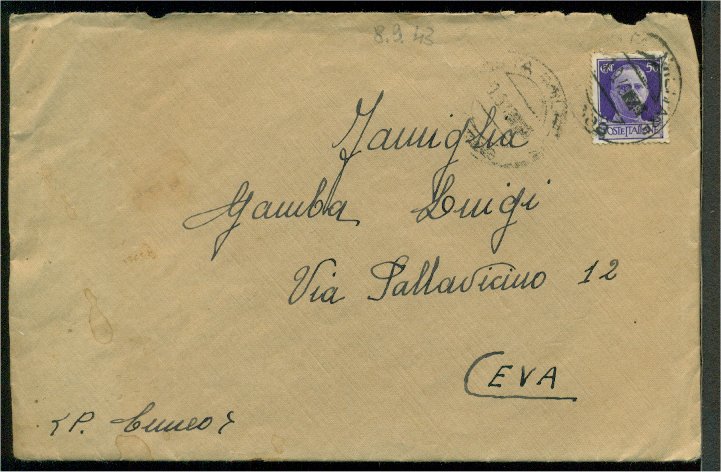 8.9.43
50
POSTE ITALIANE
Famiglia
Gamba Luigi
Via Pallavicino 12
CEVA
(P. Cuneo)